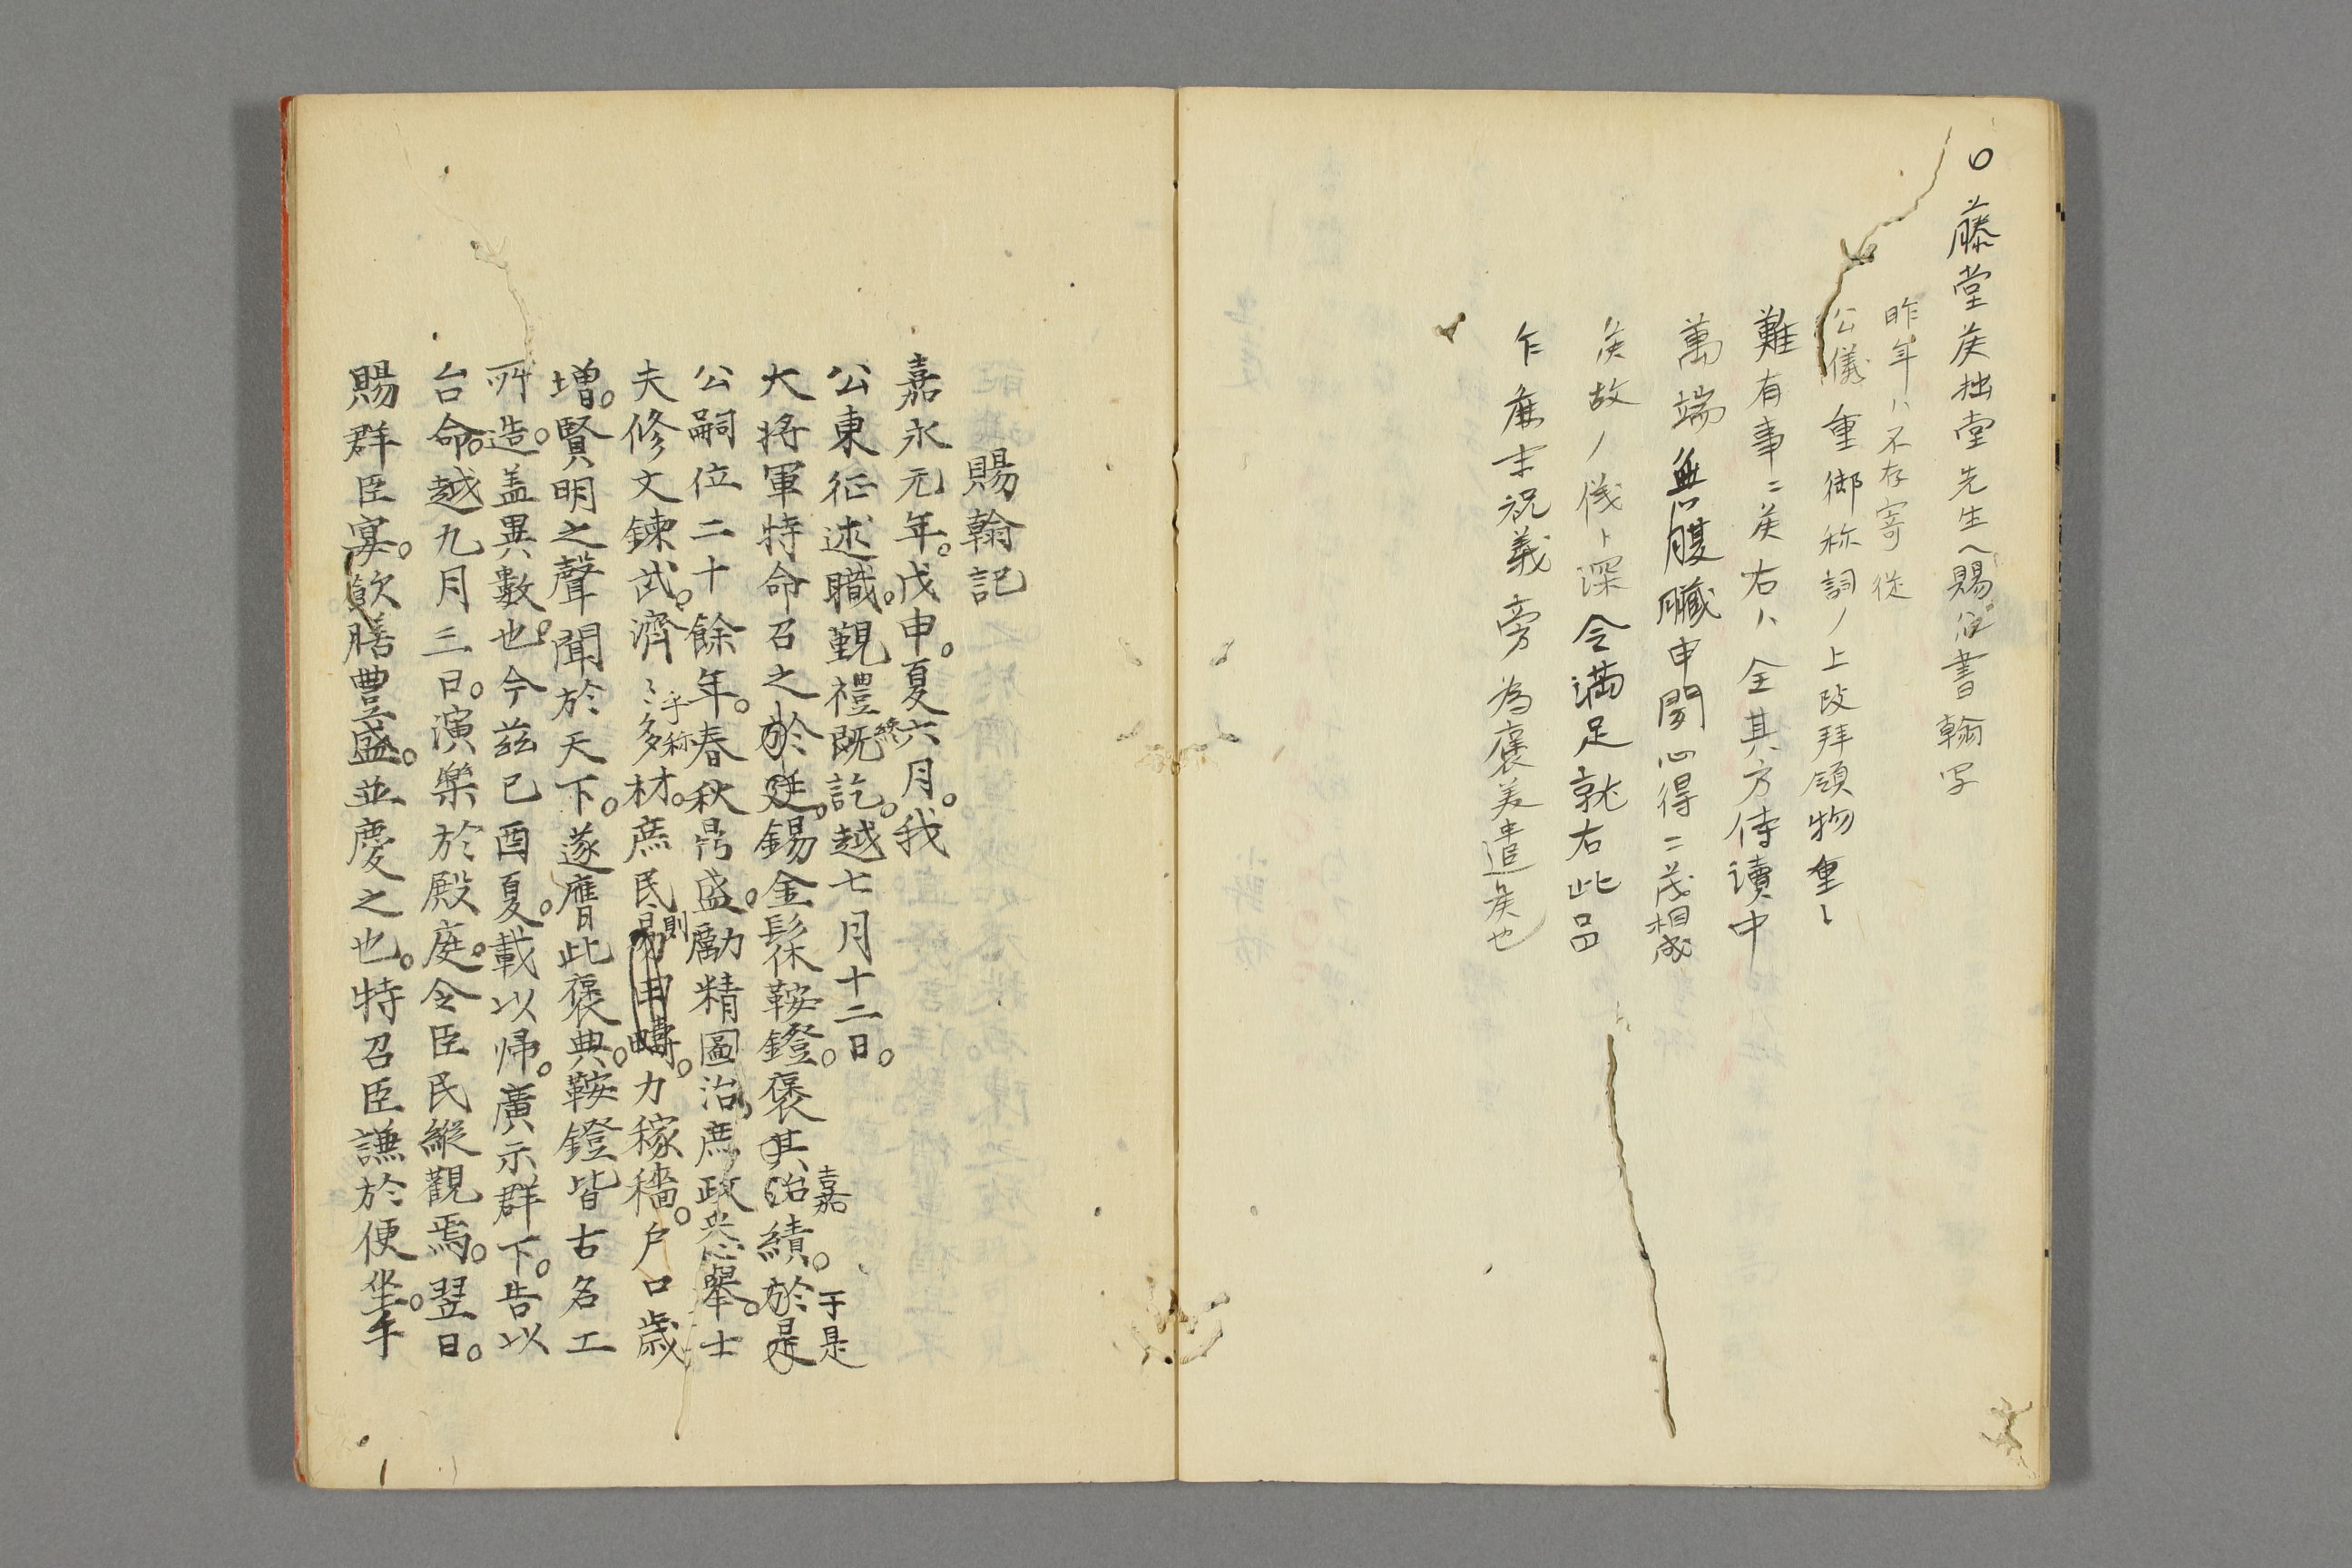 ○藤堂侯拙堂先生へ賜候書翰写
昨年ハ不存寄従
公儀重御称詞ノ上段拝領物重々
難有事ニ候右ハ全其方侍讀中
萬端無腹臓申聞心得ニ茂相成
候故ノ儀ト深令満足就右此品
乍麁末祝義旁為褒美遣候也
賜翰記
嘉永元年。戊申。夏六月。我
公東征述職。覲禮既訖。越七月十二日。
終
大将軍特命召之於廷。錫金髹鞍鐙。褒其治績。於是
嘉
于是
公嗣位二十餘年。春秋鼎盛。勵精圖治。庶政炎舉。士
夫修文鍊武。濟〻多材。庶民易田疇。力稼穡。戸口歳
乎称
則
増。賢明之聲聞於天下。遂膺此褒典。鞍鐙皆古名工
所造。盖異數也。今茲己酉夏。載以帰。廣示群下。告以
台命。越九月三日。演樂於殿庭。令臣民縦觀焉。翌日。
賜群臣宴。飲膳豊盛。並慶之也。特召臣謙於便坐。手